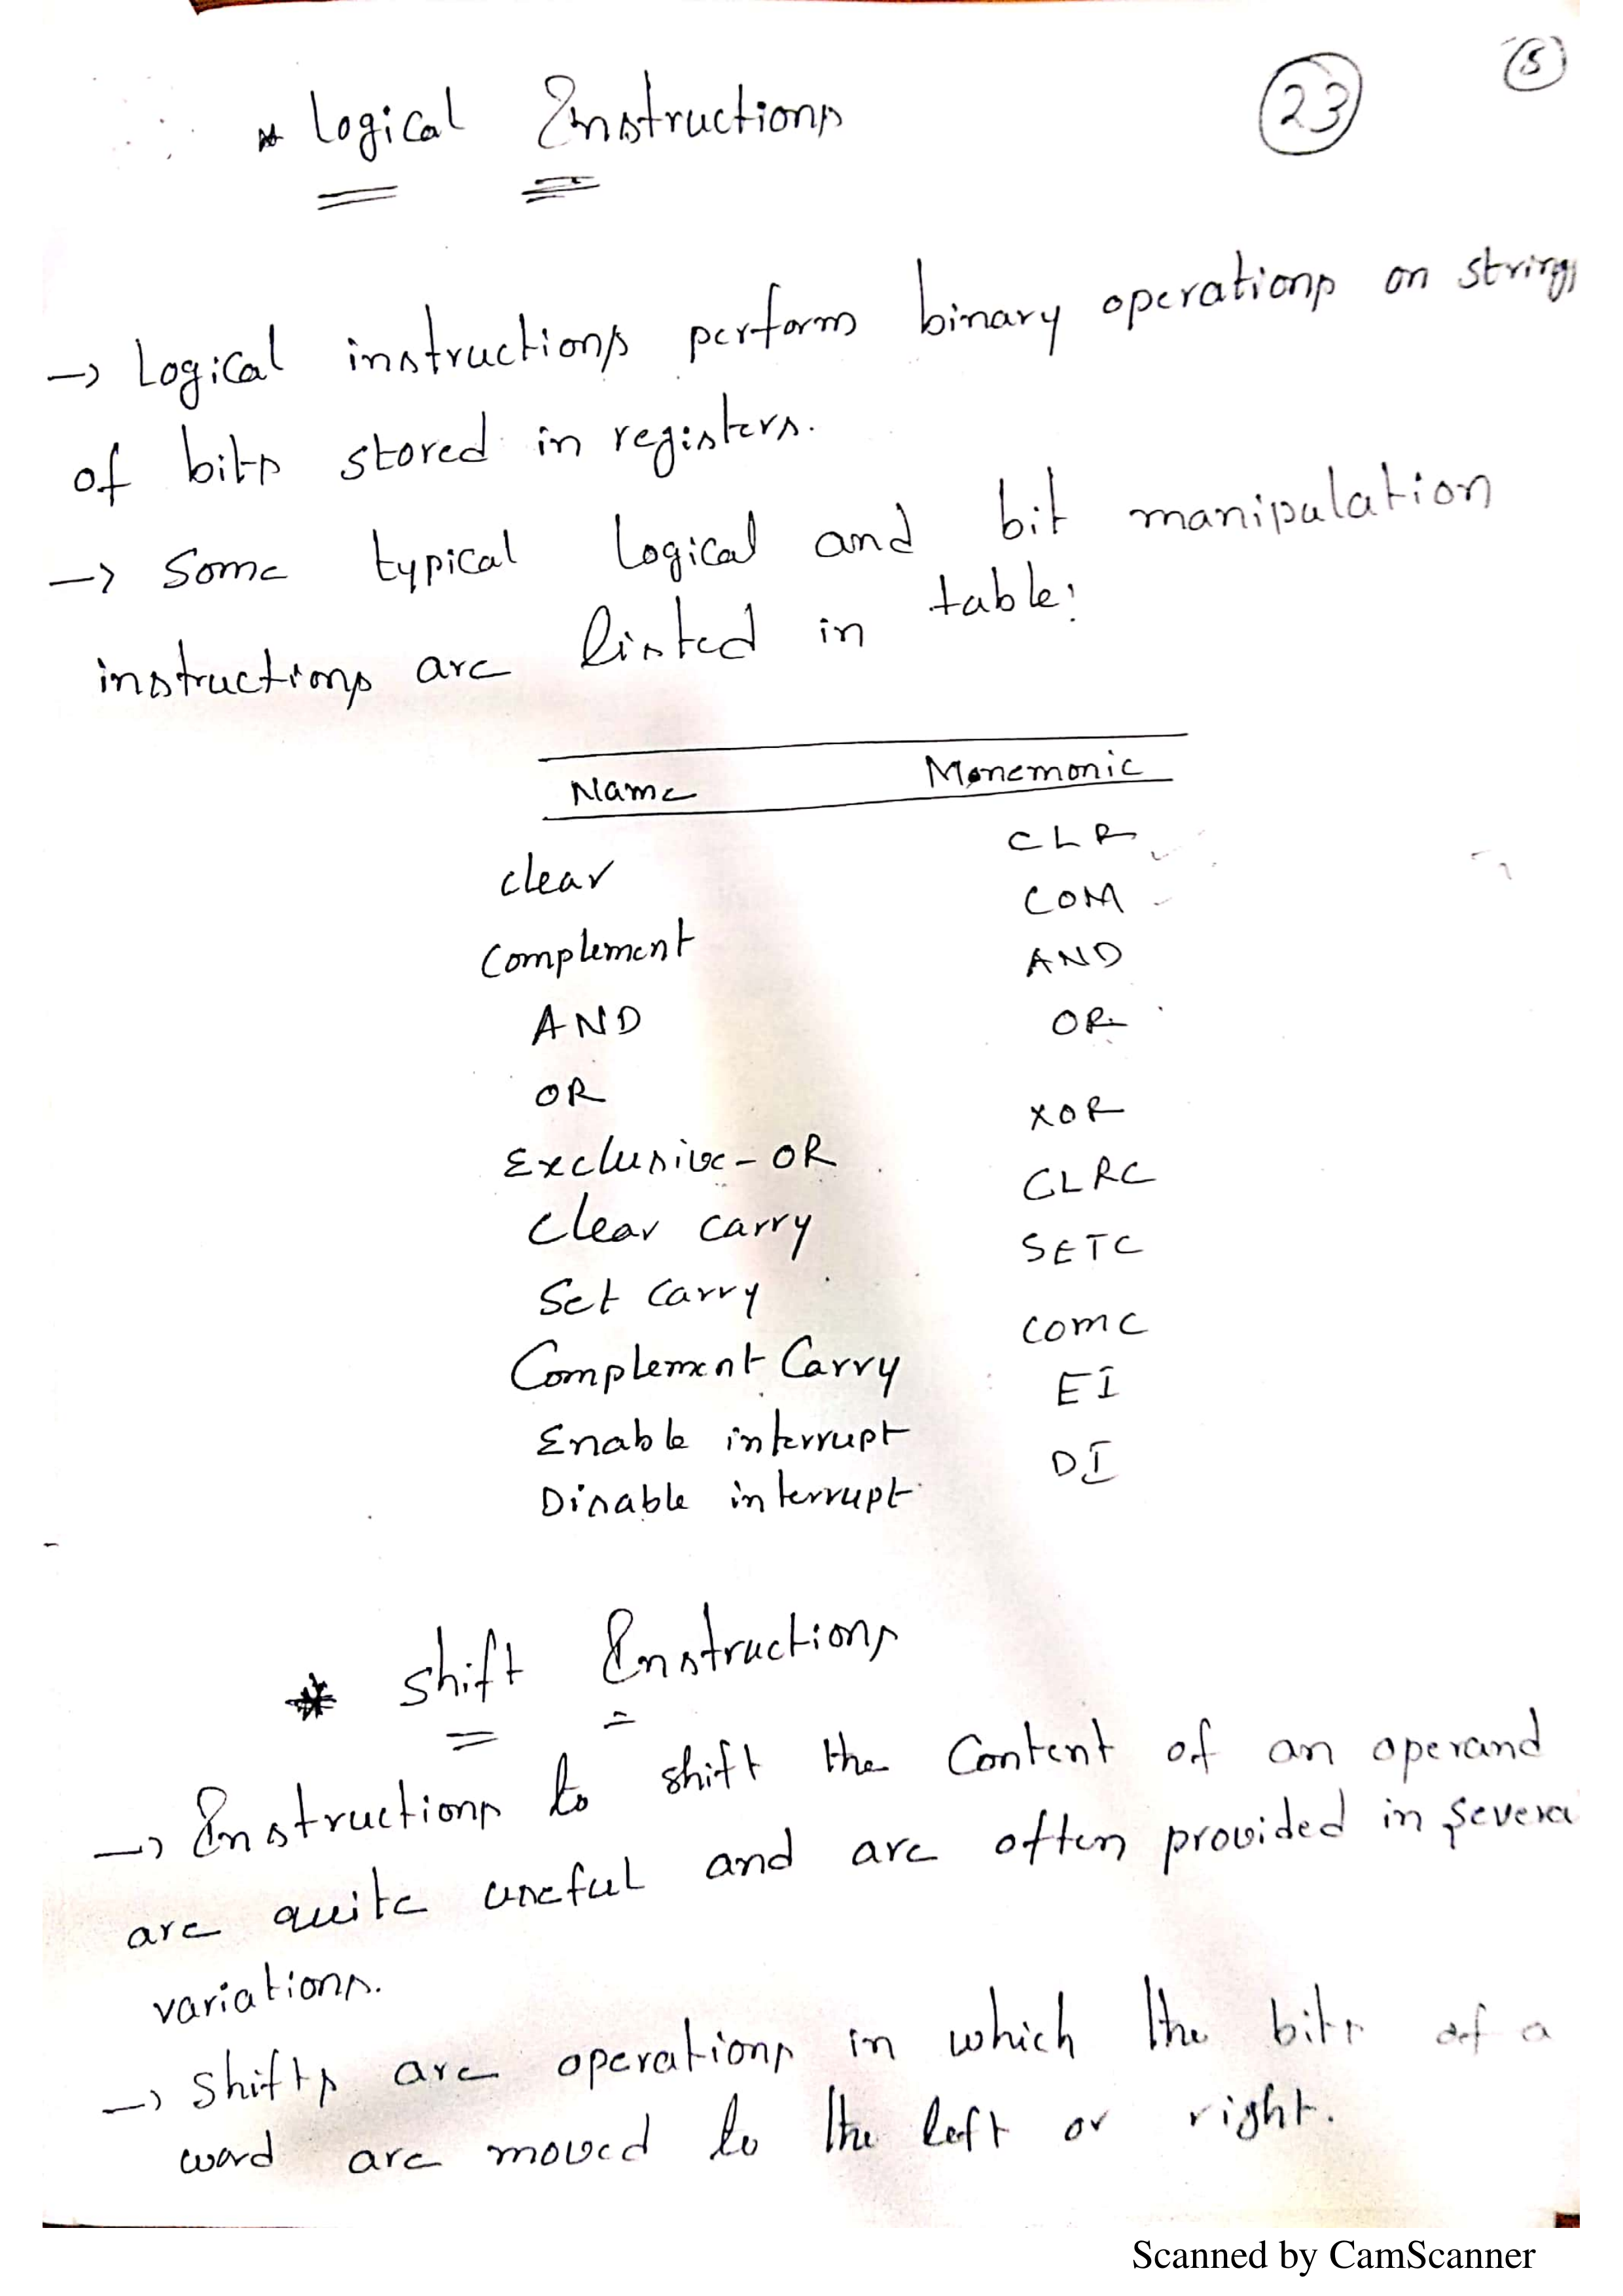 5
23
* Logical Instructions
→ Logical instructions perform binary operations on strings
of bits stored in registers.
→ Some typical logical and bit manipulation
instructions are listed in table:
Name Monemonic
clear CLR
Complement COM
AND AND
OR OR
Exclusive-OR XOR
Clear carry CLRC
Set Carry SETC
Complement Carry COMC
Enable interrupt EI
Disable interrupt DI
* Shift Instructions
→ Instructions to shift the Content of an operand
are quite useful and are often provided in severa
variations.
→ Shifts are operations in which the bits of a
word are moved to the left or right.
Scanned by CamScanner